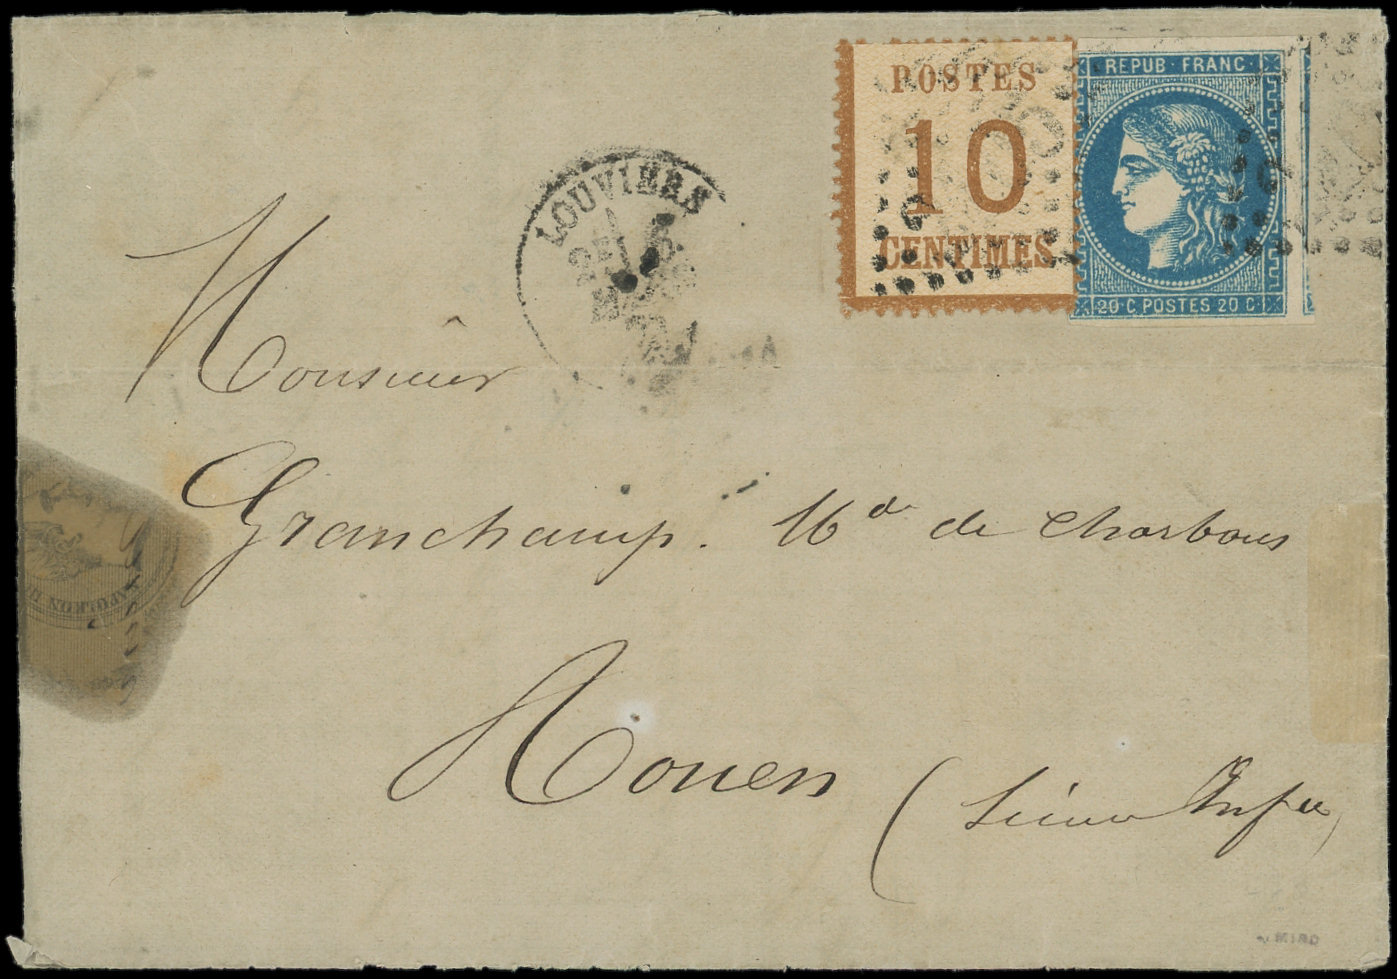 POSTES
10
CENTIMES
REPUB · FRANC
20 · C. POSTES 20 C
LOUVIERS
MARS
Monsieur
Granchamp. Md de Charbons
Rouen (Seine Infre)
NAPOLEON